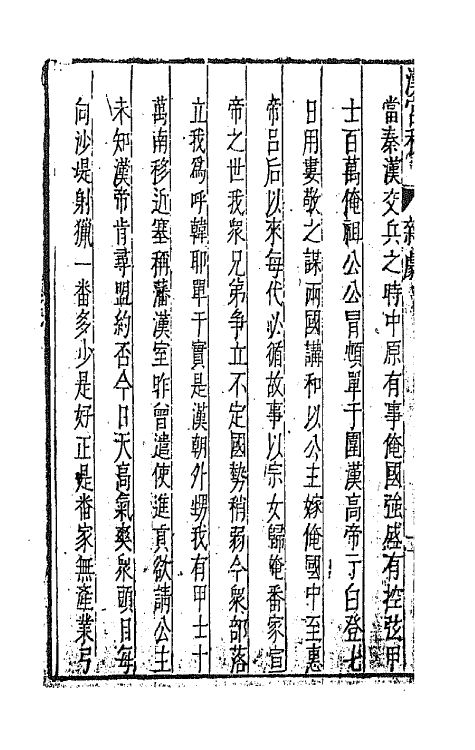 當秦漢交兵之時中原有事俺國強盛有控弦甲
士百萬俺祖公公冒頓單于圍漢高帝于白登七
日用婁敬之謀兩國講和以公主嫁俺國中至惠
帝呂后以來每代必循故事以宗女歸俺番家宣
帝之世我衆兄弟爭立不定國勢稍弱今衆部落
立我爲呼韓耶單于實是漢朝外甥我有甲士十
萬南移近塞稱藩漢室昨曾遣使進貢欲請公主
未知漢帝肯尋盟約否今日天高氣爽衆頭目每
向沙堤射獵一番多少是好正是番家無產業弓